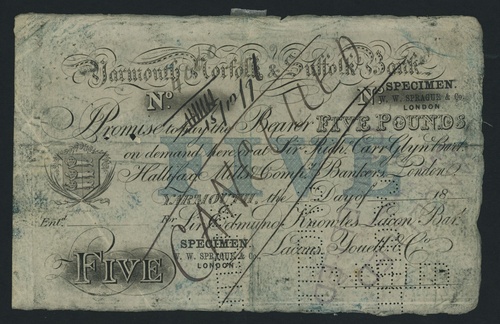 Yarmouth Norfolk & Suffolk Bank
SPECIMEN.
W. W. SPRAGUE & Co.
LONDON
No No
CANCELLED
I Promise to pay the Bearer FIVE POUNDS
on demand here or at Sir Richd. Carr Glyn Bart.
Hallifax Mills & Compy. Bankers London
FIVE
YARMOUTH, the Day of 18
Entd. For Sir Edmund Knowles Lacon Bart.
Lacons, Youell & Co
SPECIMEN.
W. W. SPRAGUE & Co.,
LONDON.
FIVE